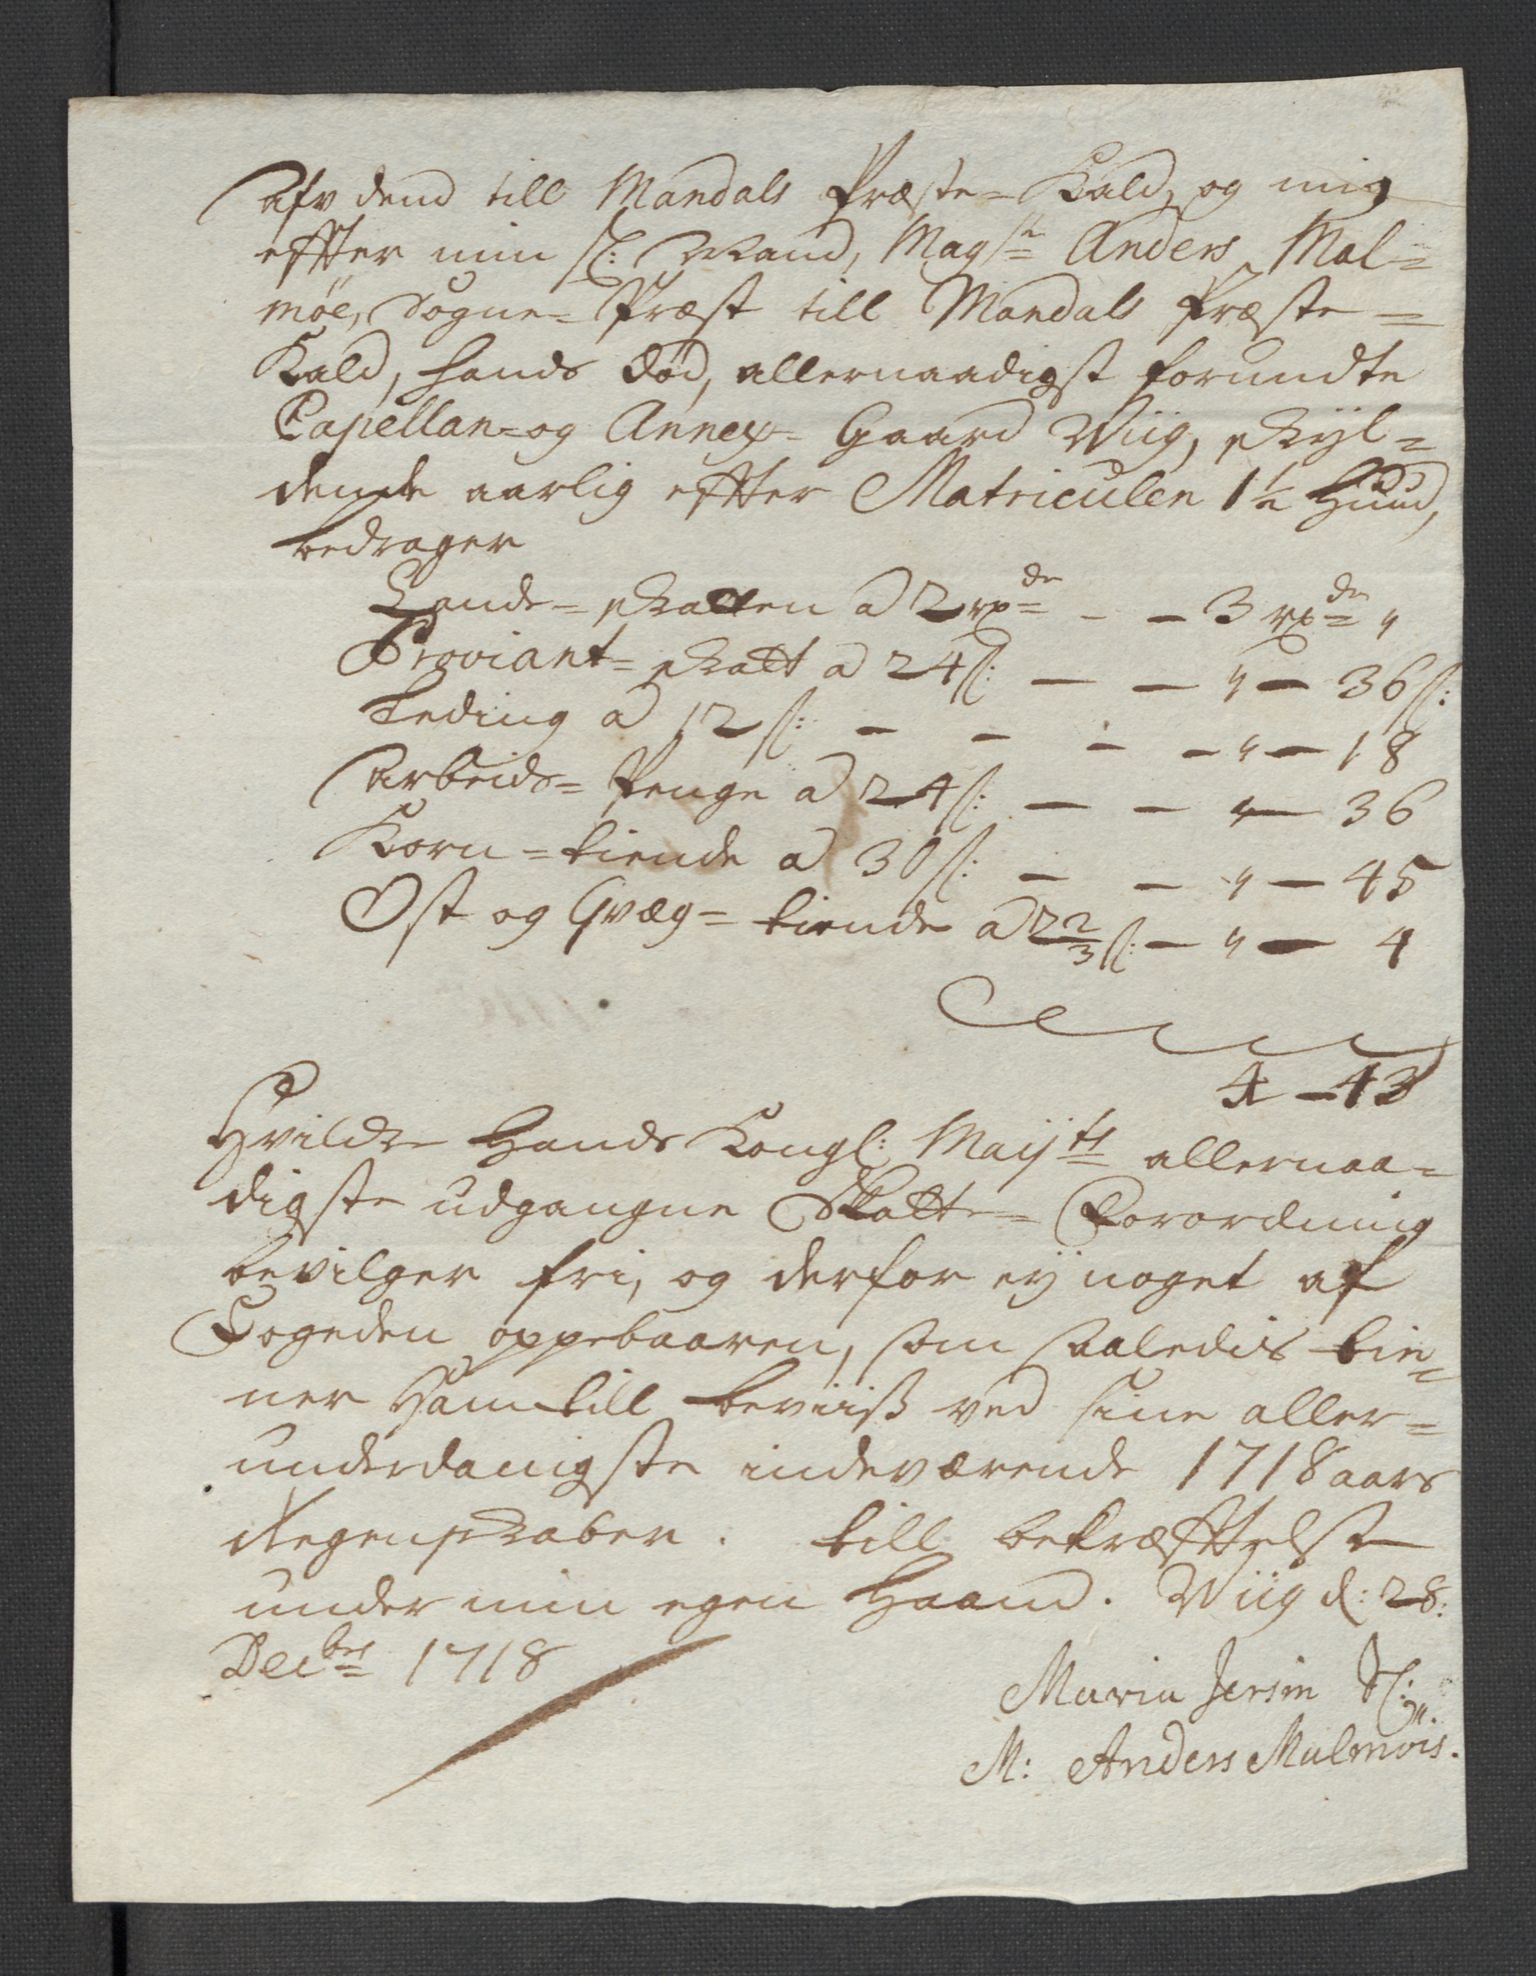 Afv dend till Mandals Præste-Kald, og mig
effter min Sl: Mand, Magsr Anders Mal-
möe, Sogne-Præst till Mandals Præste-
Kald, hands död, allernaadigst forundte
Capellan- og Annex-Gaard Wiig, skÿl-
dende aarlig effter Matriculen 1½ Huud,
bedrager
Lands-skatten a 2 rxdr - - 3 rxdr "
Proviant-skatt a 24 s: - - " - 36 s:
Leding a 12 s: - - - - " - 18
Arbeids-Penge a 24 s: - - " - 36
Korn-tiende a 30 s: - - " - 45
Ost og Qvæg-tiende a 2 2/3 s: - " - 4
4 - 43
Hvilde Hands Kongl: Maijts allernaa-
digste udgangne Skatte-Forordning
bevilger fri, og derfor eÿ noget af
Fogeden oppebaaren, som saaledis tie-
ner Ham till beviiß ved sine aller-
underdanigste indeværende 1718 aars
Regenskaber. till bekræfftelse
under min egen Haand. Wiig d: 28:
Decbrs 1718
Maria Jersin Sl:
M: Anders Malmöis.